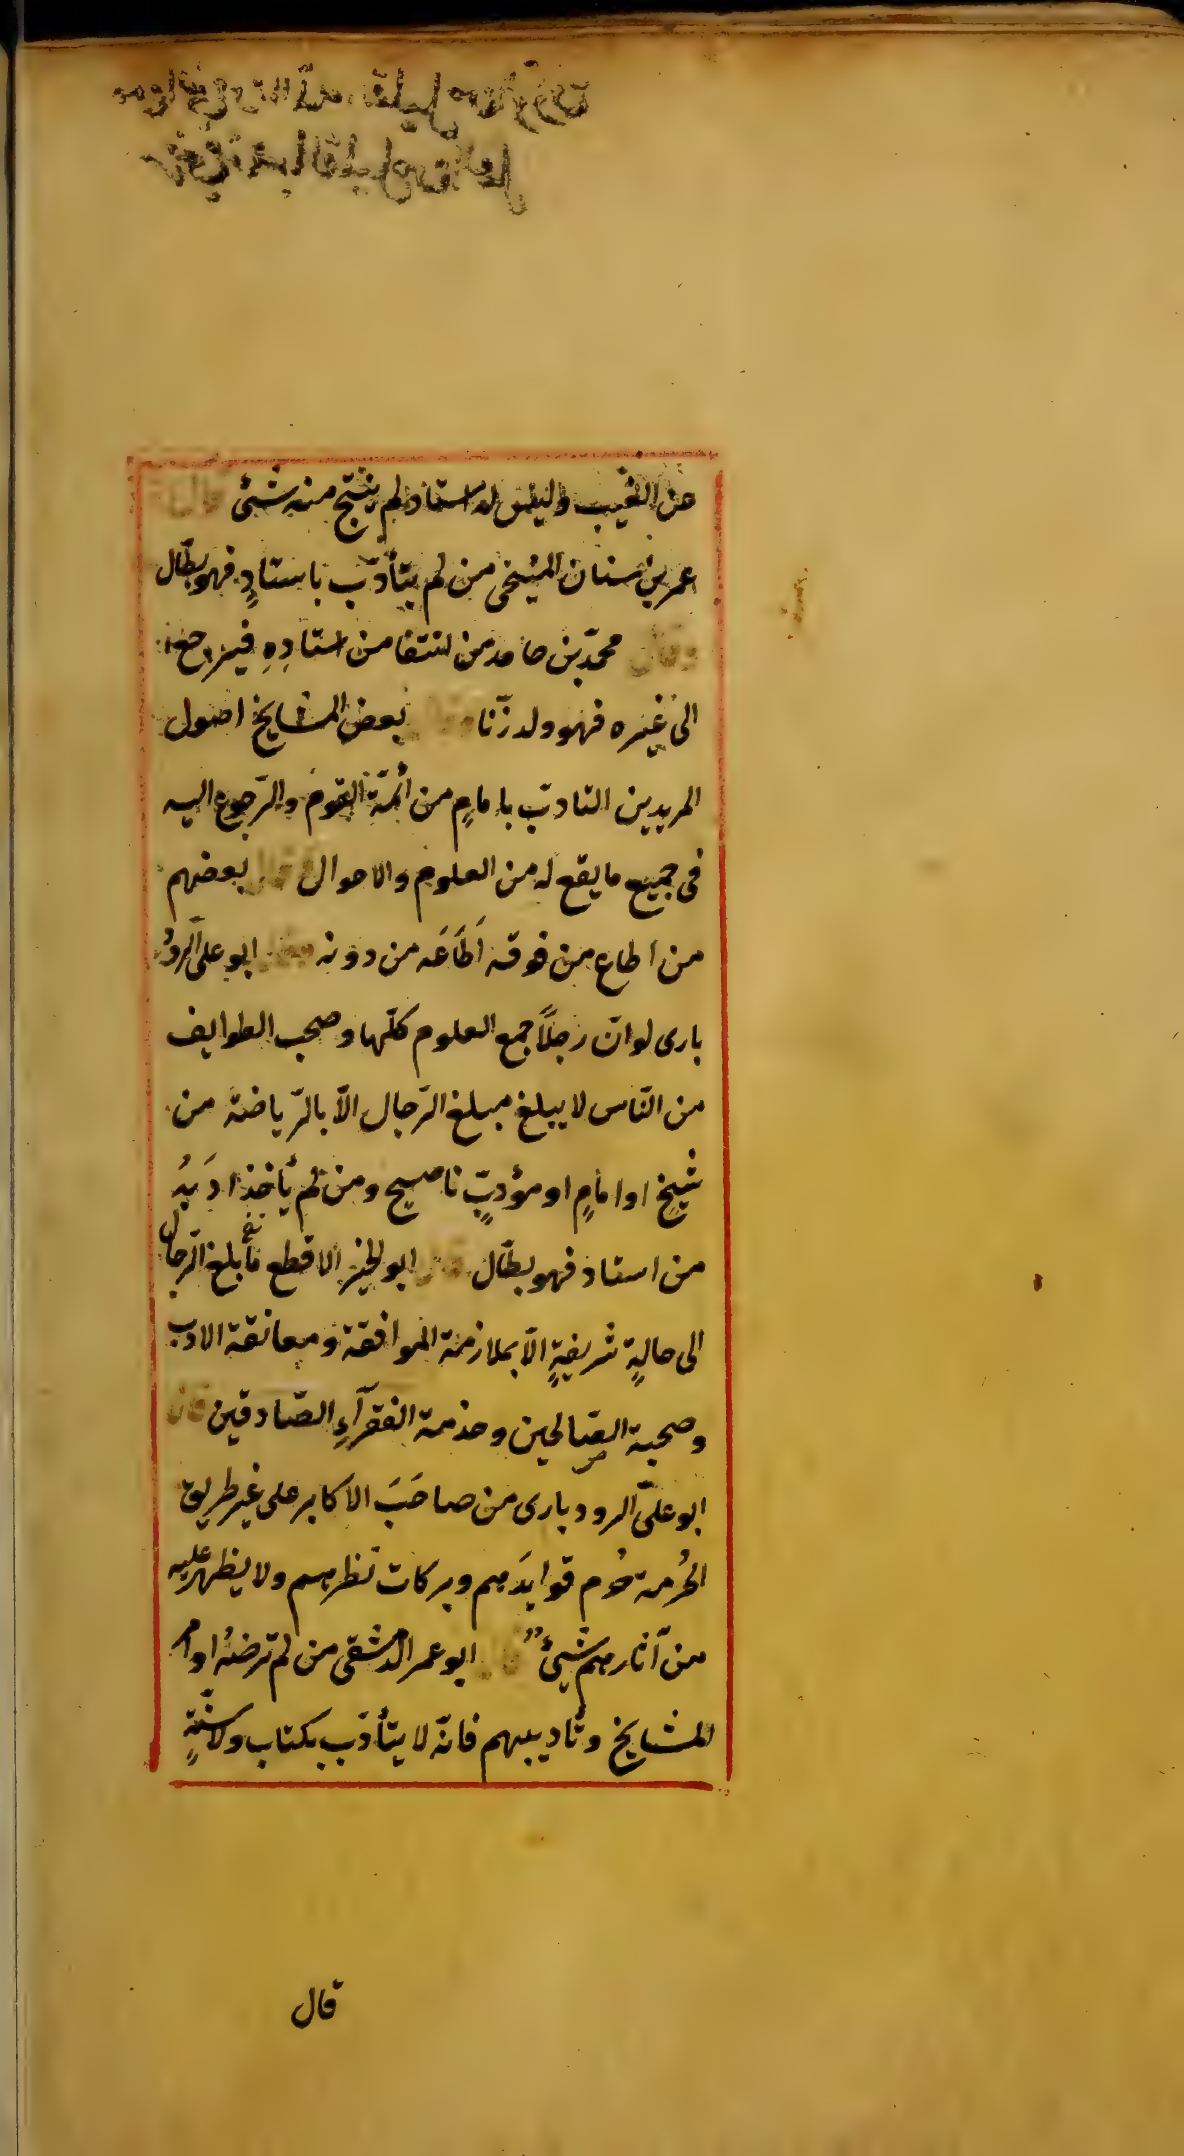 عن الغيب وليس له استاد لم ينتج منه شئ قال
عمر بن سنان المنيحى من لم يتأدّب باستادٍ فهو بطّال
وقال محمّد بن حامد من انتفا من استادِهِ فيرجع
الى غيره فهو ولد زّنا وقال بعض المشايخ اصول
المريدين التادب بامامٍ من أئمّة القوم والرّجوع اليه
فى جميع ما يقع له من العلوم والاحوال وقال بعضهم
من اطاع من فوقه اَطَاعَه من دونه وقال ابو على الرّوذ
بارى لو انّ رجلاً جمع العلوم كلّها وصحب الطوايف
من النّاس لا يبلغ مبلغ الرّجال الاّ بالرّياضة من
شيخٍ او امامٍ او مؤدبٍّ ناصح ومن لم يأخذ ادَبَهُ
من استاد فهو بطّال قال ابو الخير الاقطع ما بلغ الرّجال
الى حالةٍ شريفةٍ الاّ بملازمة الموافقة ومعانقة الادب
وصحبة الصّالحين وخدمة الفقرآءِ الصّادقين قال
ابو علىّ الرودبارى من صاحَبَ الاكابر على غير طريق
الحُرمة حُرم فوايدَهم وبركات نظرهم ولا يظهر عليه
من آثارهم شيئ قال ابو عمر الدمشقى من لم ترضهُ اوامر
المشايخ وتأديبهم فانّه لا يتأدّب بكتاب ولا سنّةٍ
قال